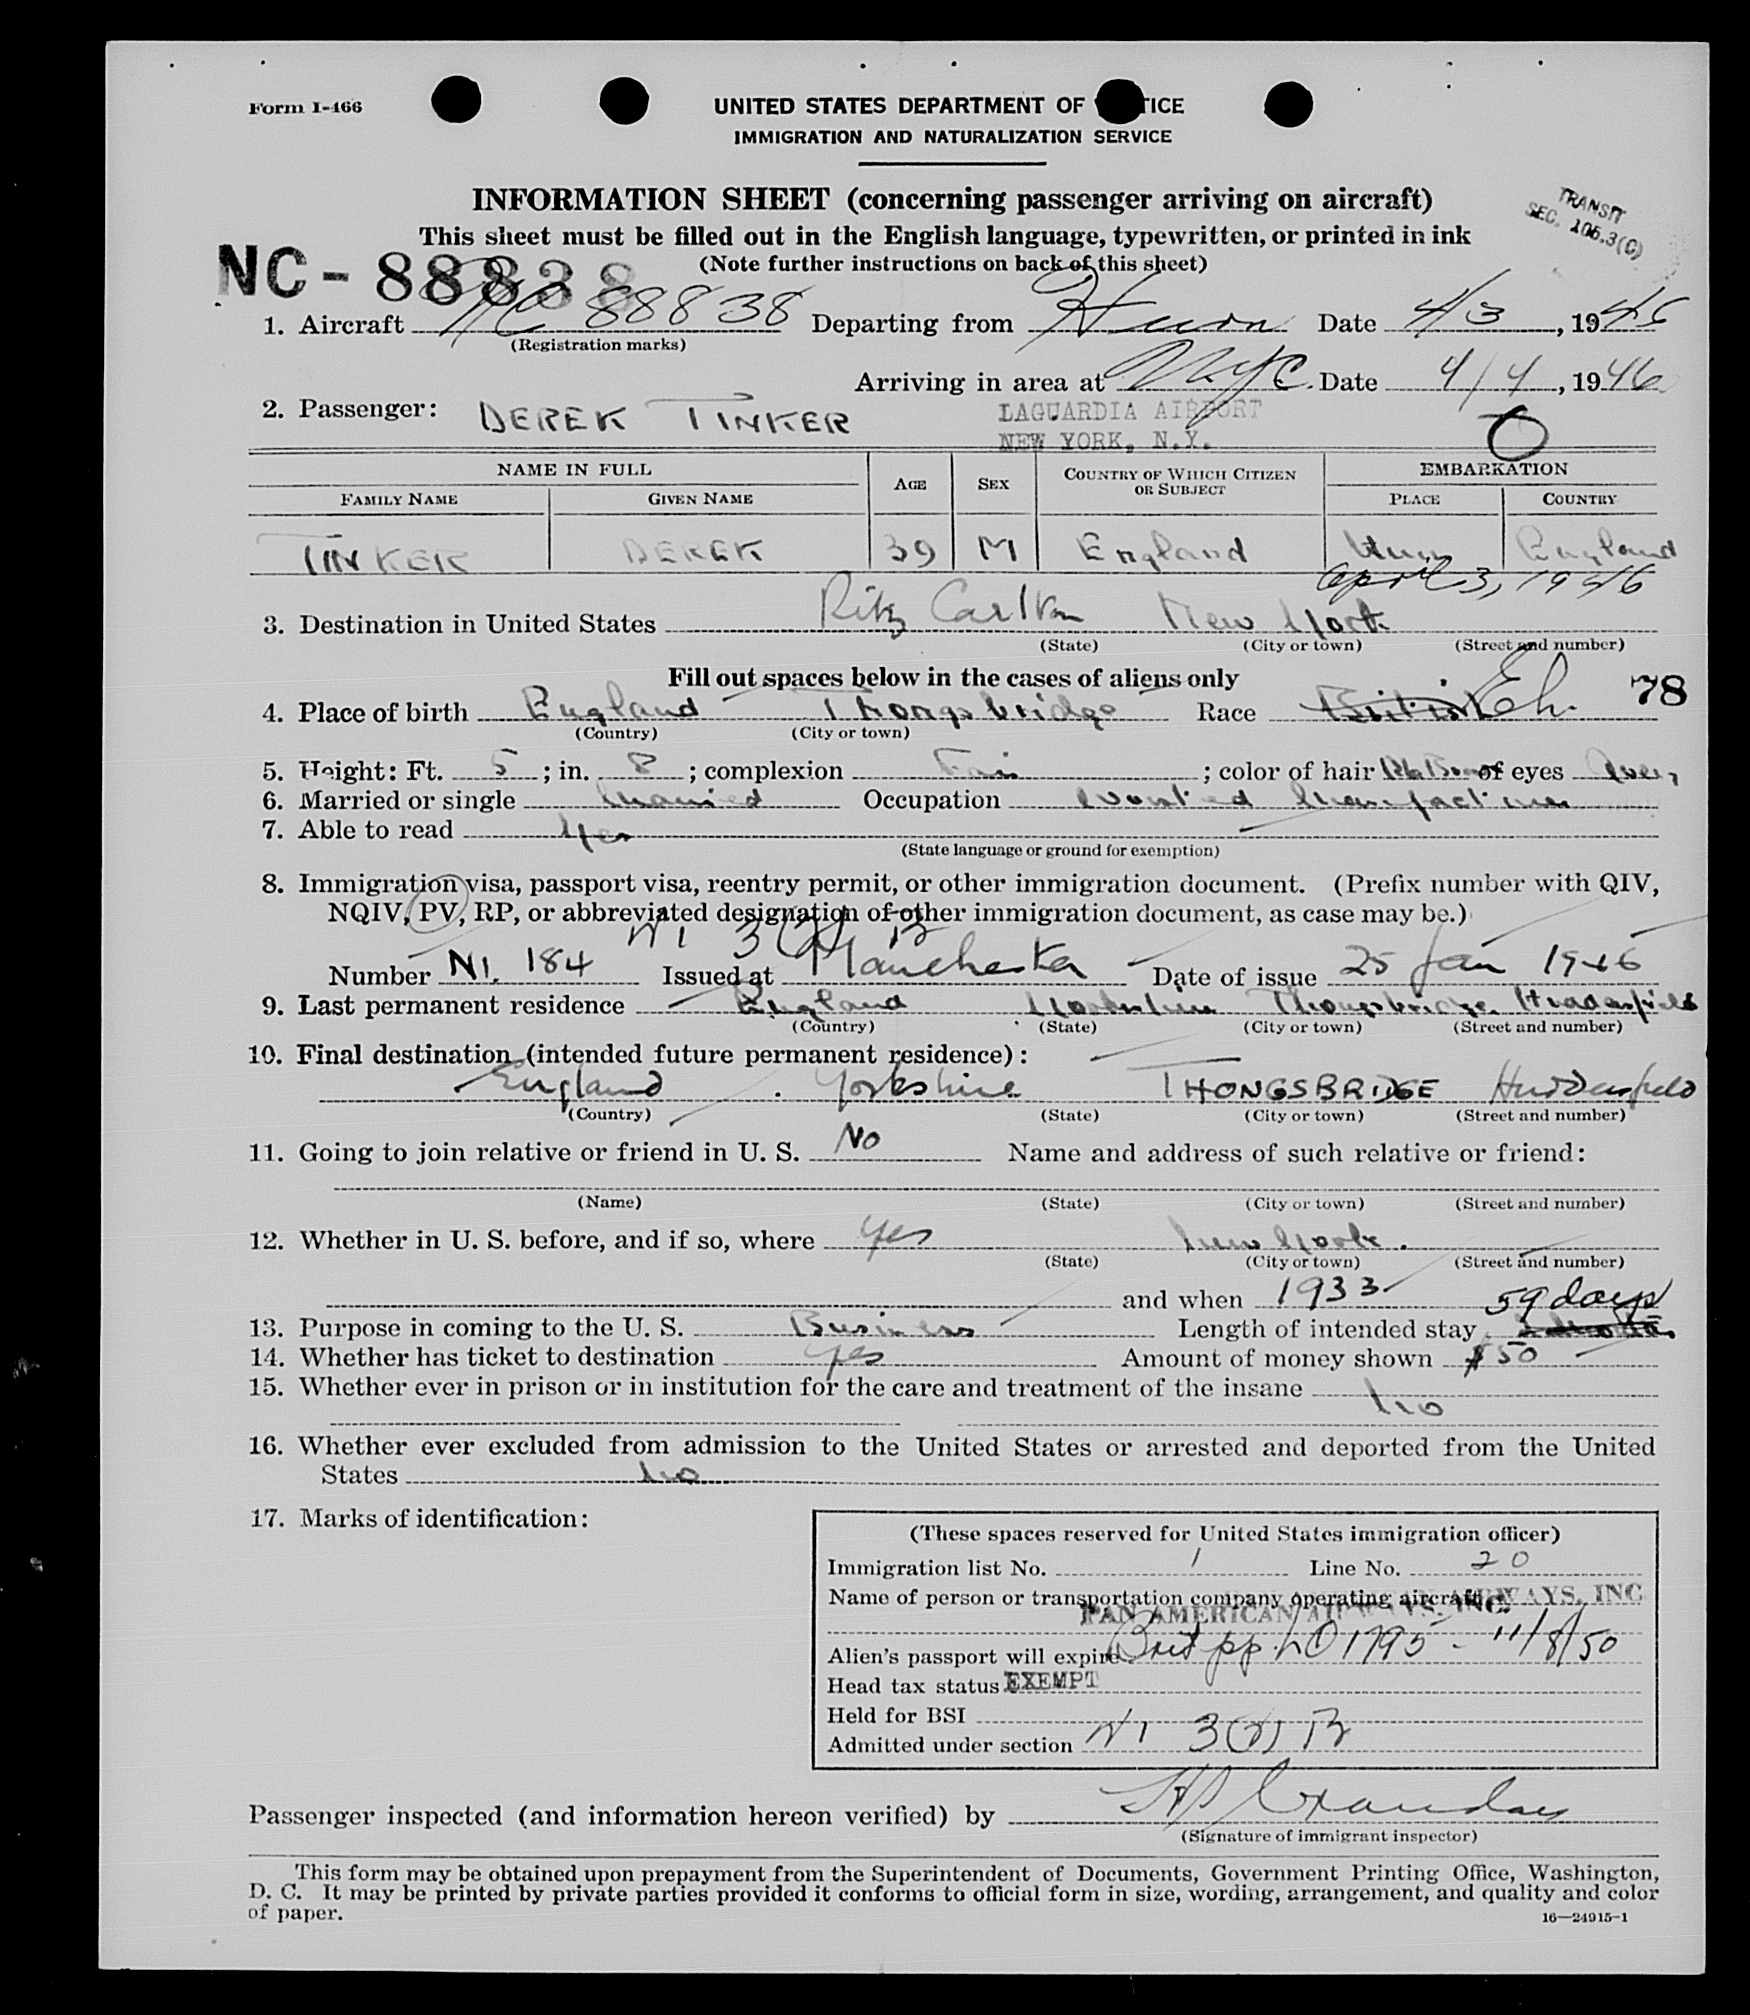 Form I-466
UNITED STATES DEPARTMENT OF TICE
IMMIGRATION AND NATURALIZATION SERVICE
INFORMATION SHEET (concerning passenger arriving on aircraft)
TRANSIT
SEC. 105.3(C)
This sheet must be filled out in the English language, typewritten, or printed in ink
(Note further instructions on back of this sheet)
NC-88838
1. Aircraft NC 88838 Departing from Hurn Date 4/3, 1945
(Registration marks)
Arriving in area at NYC. Date 4/4, 1946
2. Passenger: DEREK TINKER
LAGUARDIA AIRPORT
NEW YORK, N.Y.
NAME IN FULL AGE SEX COUNTRY OF WHICH CITIZEN OR SUBJECT EMBARKATION
FAMILY NAME GIVEN NAME PLACE COUNTRY
TINKER DEREK 39 M England Hurn England
April 3, 1946
3. Destination in United States Ritz Carlton New York
(State) (City or town) (Street and number)
Fill out spaces below in the cases of aliens only
78
4. Place of birth England Thongsbridge Race British Eh.
(Country) (City or town)
5. Height: Ft. 5; in. 8; complexion Fair; color of hair of eyes
6. Married or single Married Occupation Worsted Manufacturer
7. Able to read Yes
(State language or ground for exemption)
8. Immigration visa, passport visa, reentry permit, or other immigration document. (Prefix number with QIV,
NQIV, PV, RP, or abbreviated designation of other immigration document, as case may be.)
NI 3(2) B
Number NI. 184 Issued at Manchester Date of issue 25 Jan 1946
9. Last permanent residence England Yorkshire Thongsbridge Huddersfield
(Country) (State) (City or town) (Street and number)
10. Final destination (intended future permanent residence):
England Yorkshire THONGSBRIDGE Huddersfield
(Country) (State) (City or town) (Street and number)
11. Going to join relative or friend in U. S. No Name and address of such relative or friend:
(Name) (State) (City or town) (Street and number)
12. Whether in U. S. before, and if so, where Yes New York.
(State) (City or town) (Street and number)
and when 1933
59 days
13. Purpose in coming to the U. S. Business Length of intended stay
14. Whether has ticket to destination Yes Amount of money shown $50
15. Whether ever in prison or in institution for the care and treatment of the insane
no
16. Whether ever excluded from admission to the United States or arrested and deported from the United
States no
17. Marks of identification:
(These spaces reserved for United States immigration officer)
Immigration list No. 1 Line No. 20
Name of person or transportation company operating aircraft
PAN AMERICAN AIRWAYS, INC.
Alien's passport will expire Brit pp LO1795 - 11/8/50
Head tax status EXEMPT
Held for BSI
Admitted under section NI 3(2) B
Passenger inspected (and information hereon verified) by
(Signature of immigrant inspector)
This form may be obtained upon prepayment from the Superintendent of Documents, Government Printing Office, Washington,
D. C. It may be printed by private parties provided it conforms to official form in size, wording, arrangement, and quality and color
of paper.
16—24915-1